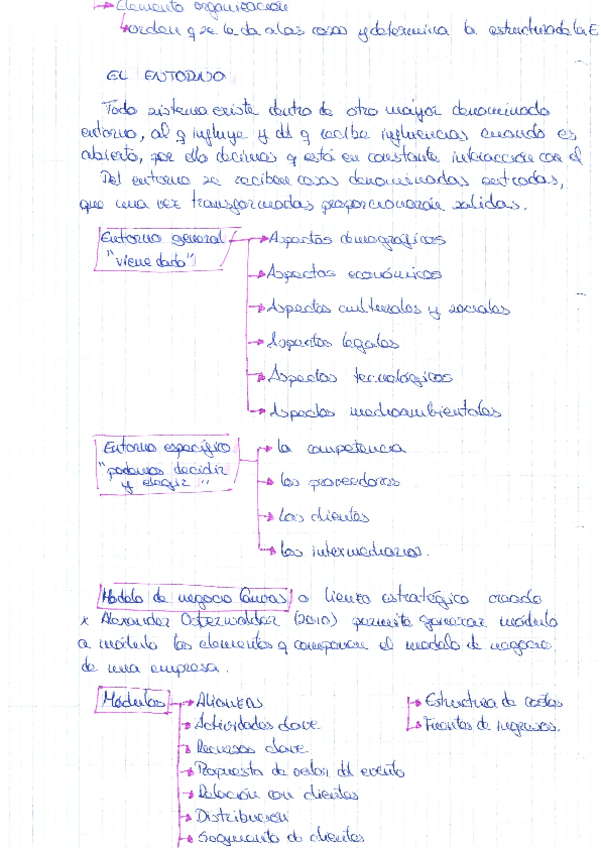 Elemento organización
orden q se le da a las cosas y determina la estructura de la E
EL ENTORNO
Todo sistema existe dentro de otro mayor denominado
entorno, al q influye y del q recibe influencias cuando es
abierto, por ello decimos q está en constante interacción con él
Del entorno se reciben cosas denominadas entradas,
que una vez transformadas proporcionarán salidas.
Entorno general
"viene dado"
Aspectos demográficos
Aspectos económicos
Aspectos culturales y sociales
Aspectos legales
Aspectos tecnológicos
Aspectos medioambientales
Entorno específico
"podemos decidir
y elegir"
la competencia
los proveedores
los clientes
los intermediarios.
Modelo de negocio Canvas o lienzo estratégico creado
x Alexander Osterwalder (2010) permite generar módulo
a módulo los elementos q componen el modelo de negocio
de una empresa.
Módulos
Alianzas
Actividades clave
Recursos clave
Propuesta de valor del evento
Relación con clientes
Distribución
Segmento de clientes
Estructura de costes
Fuentes de ingresos.